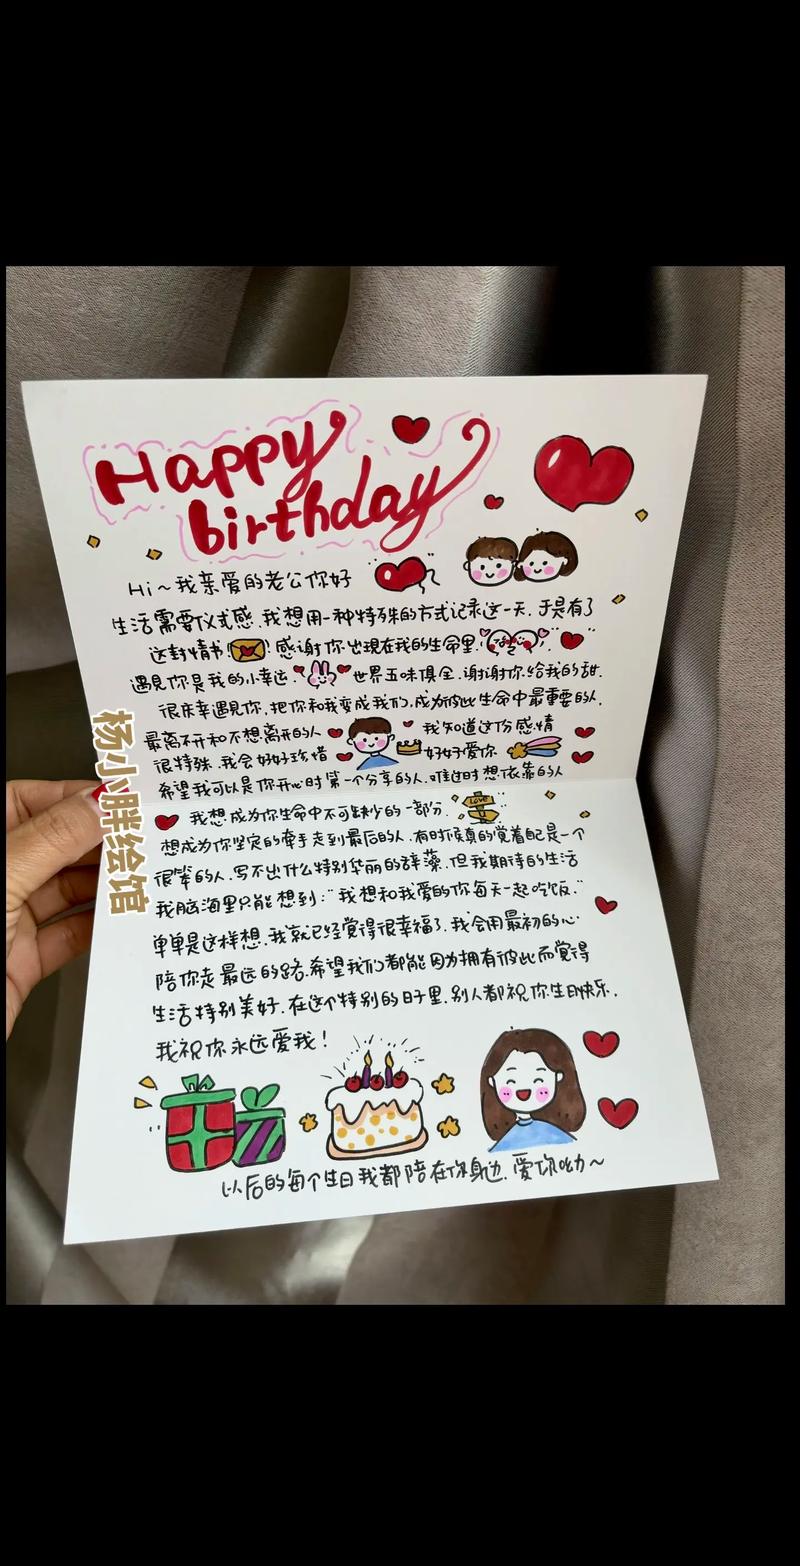 Happy
birthday
Hi~我亲爱的老公你好
生活需要仪式感.我想用一种特殊的方式记录这一天.于是有了
这封情书!感谢你出現在我的生命里.
遇見你是我的小幸运.世界五味俱全.谢谢你给我的甜.
很庆幸遇見你.把你和我变成我们.成为彼此生命中最重要的人.
最离不开和不想离开的人 我知道这份感情
很特殊.我会好好珍惜 好好爱你
希望我可以是你开心时第一个分享的人.难过时想依靠的人
我想成为你生命中不可缺少的一部分.
想成为你坚定的牵手走到最后的人.有时候真的觉着自己是一个
很笨的人.写不出什么特别华丽的辞藻.但我期待的生活
我脑海里只能想到:"我想和我爱的你每天一起吃饭."
单单是这样想.我就已经觉得很幸福了.我会用最初的心
陪你走最远的路.希望我们都能因为拥有彼此而觉得
生活特别美好.在这个特别的日子里.别人都祝你生日快乐.
我祝你永远爱我!
LOVE
以后的每个生日我都陪在你身边.爱你呦~
杨小胖绘馆